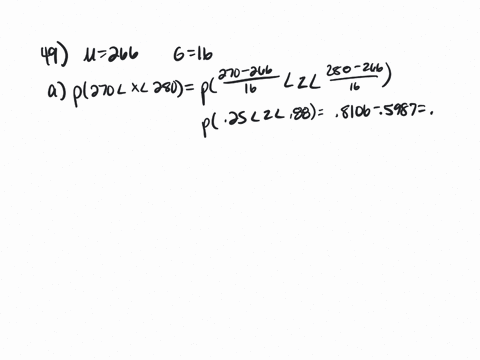 49) μ=266 σ=16
a) P(270< x< 280) = P(270-266/16 < z < 280-266/16)
P(.25 < z < .88) = .8106-.5987= .